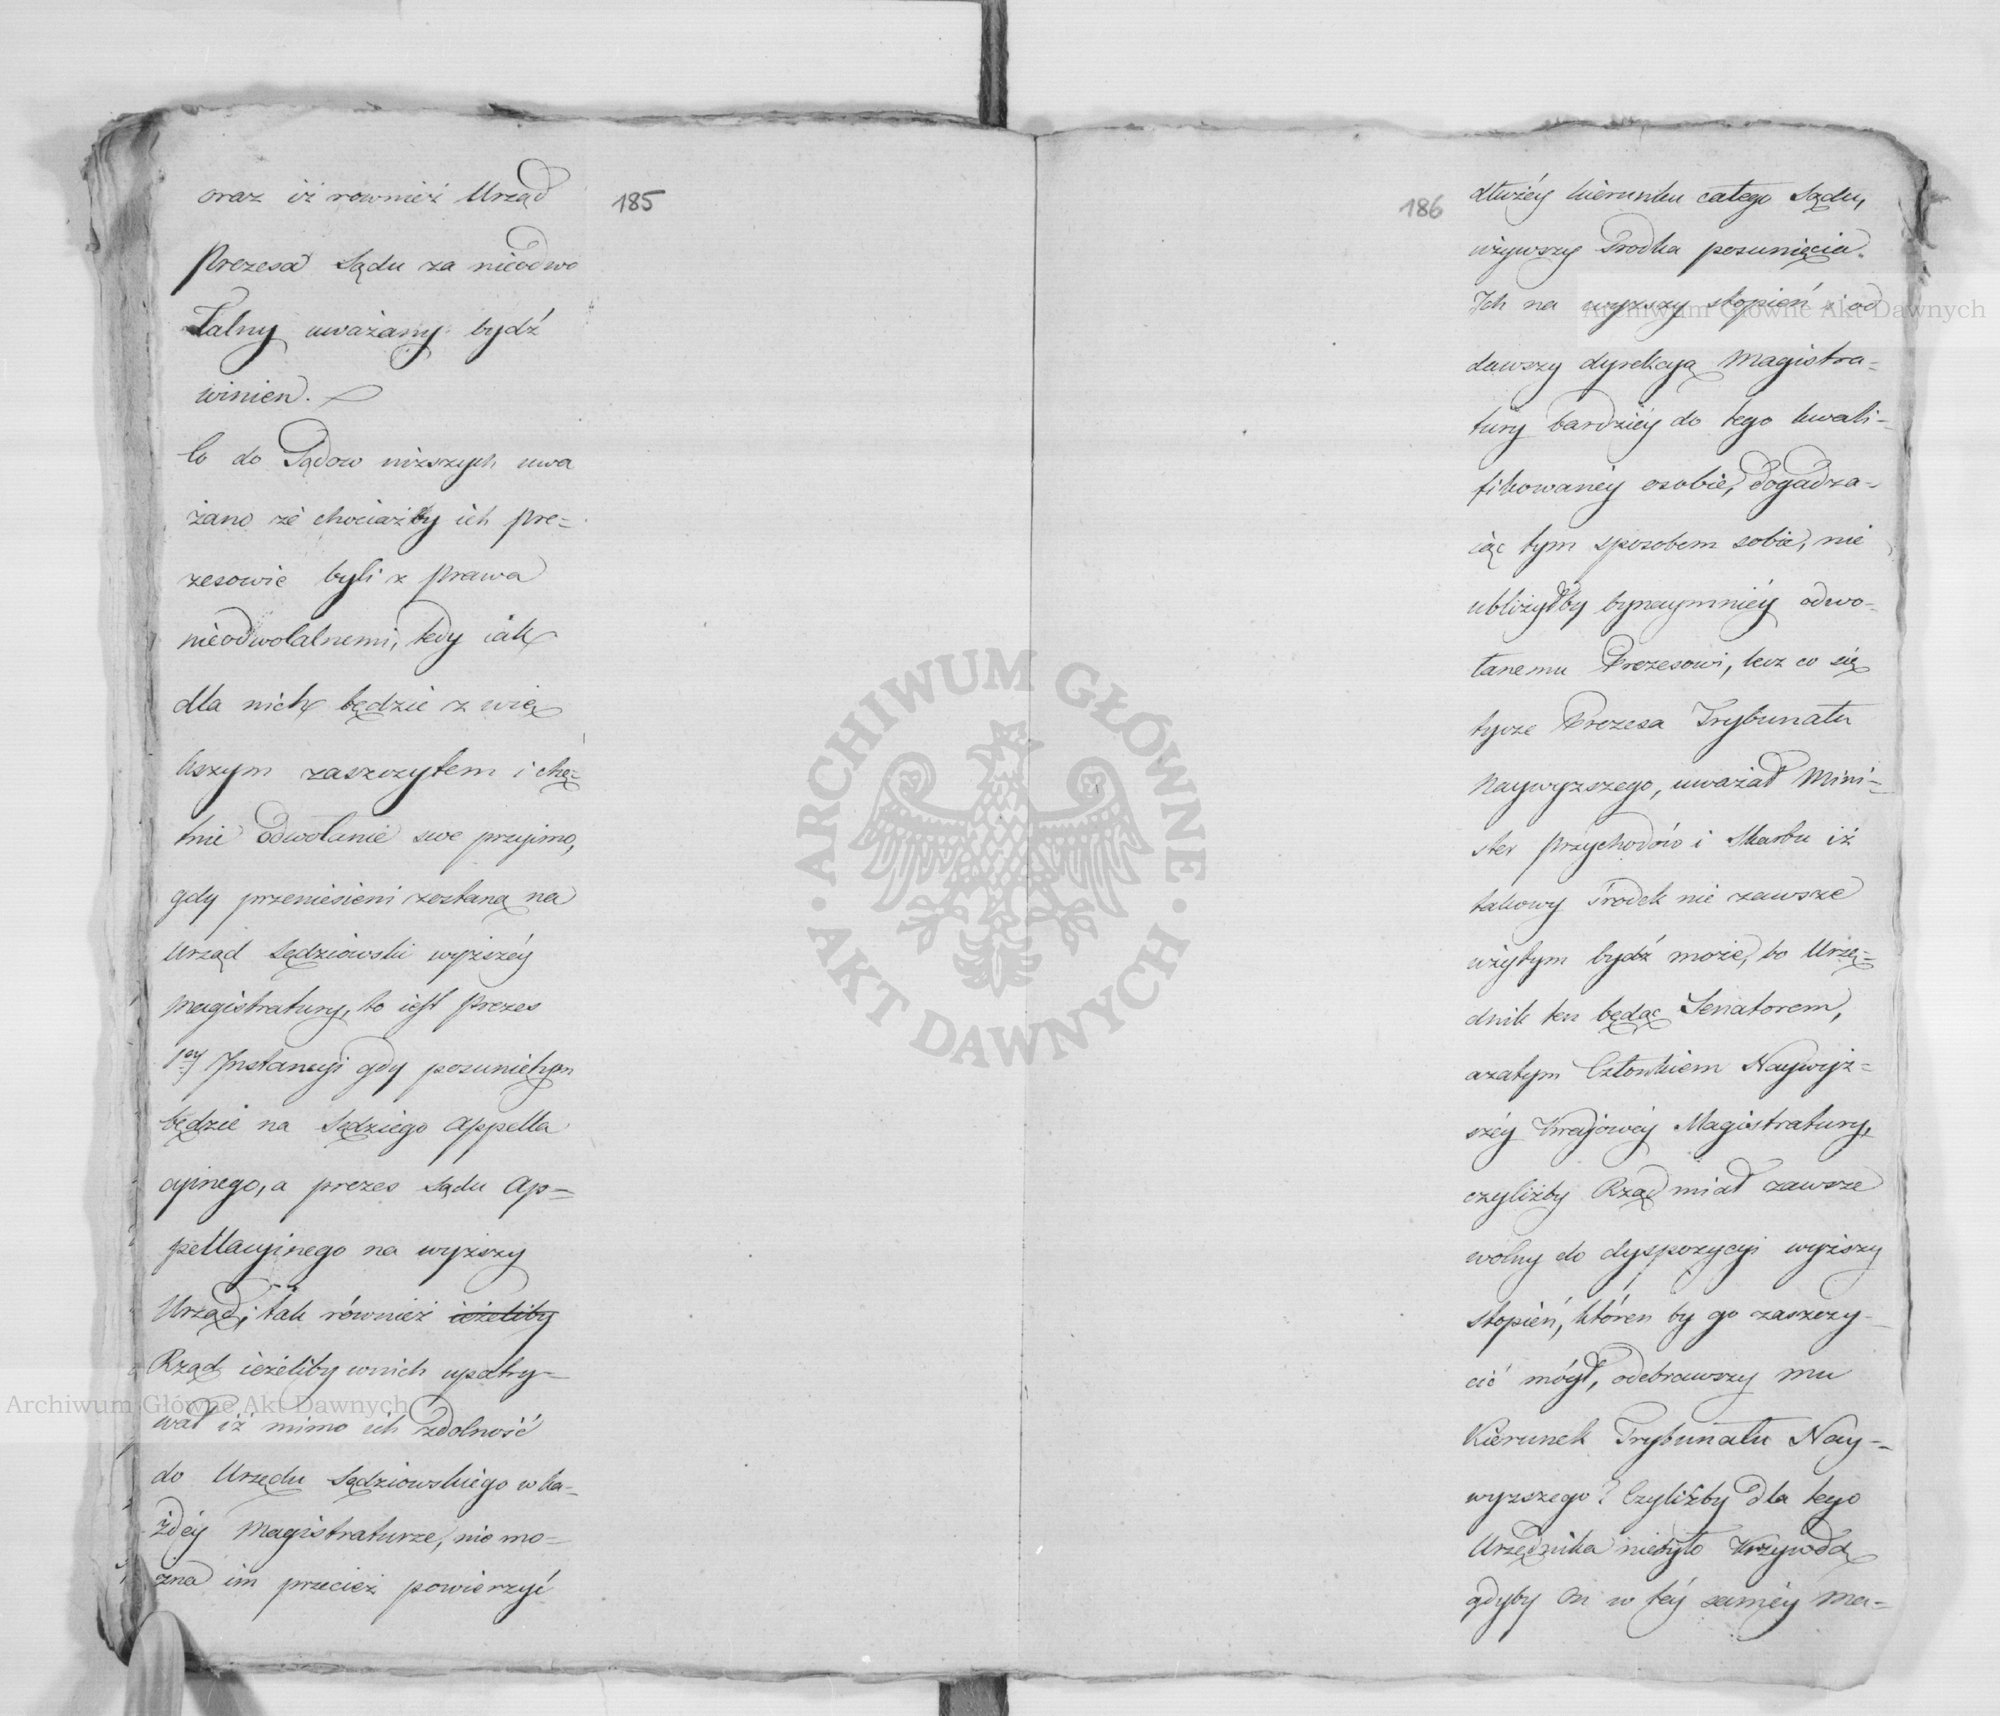 185
oraz iż rownież Urząd
Prezesa Sądu za nieodwo
łalny uważany bydź
winien.
Co do Sądow niższych uwa
żano że chociażby ich pre=
zesowie byli z prawa
nieodwołalnemi, tedy iak
dla nich będzie z wię
kszym zaszczytem i chę=
tnie odwołanie swe przyjmą,
gdy przeniesieni zostaną na
Urząd Sędziowski wyższéy
Magistratury, to iest Prezes
1ey Instancyi gdy posuniętym
będzie na Sędziego Appella
cyinego, a prezes Sądu Ap=
pellacyinego na wyższy
Urząd; tak również ieżeliby
Rząd ieżeliby w nich upatry=
wał iż mimo ich zdolność
do Urzędu Sędziowskiego w ka=
żdéy Magistraturze, nie mo=
żna im przecież powierzyć
186
dłużéy kierunku całego Sądu,
używszy środka posunięcia
Ich na wyższy stopień i od
dawszy dyrekcyą Magistra=
tury bardziéy do tego kwali=
fikowanéy osobie, dogadza=
iąc tym sposobem sobie, nie
ubliżyłby bynaymniéy odwo=
łanemu Prezesowi, lecz co się
tycze Prezesa Trybunału
Naywyższego, uważał Mini=
ster Przychodów i Skarbu iż
takowy środek nie zawsze
użytym bydź może, bo Urzę=
dnik ten będąc Senatorem,
a zatym Członkiem Naywyż=
széy Kraiowéy Magistratury,
czyliżby Rząd miał zawsze
wolny do dyspozycyi wyższy
stopień, któren by go zaszczy=
cić mógł, odebrawszy mu
Kierunek Trybunału Nay=
wyższego? Czyliżby dla tego
Urzędnika niebyło Krzywdą
gdyby On w téy saméy Ma=
ARCHIWUM GŁÓWNE AKT DAWNYCH
Archiwum Główne Akt Dawnych
Archiwum Główne Akt Dawnych